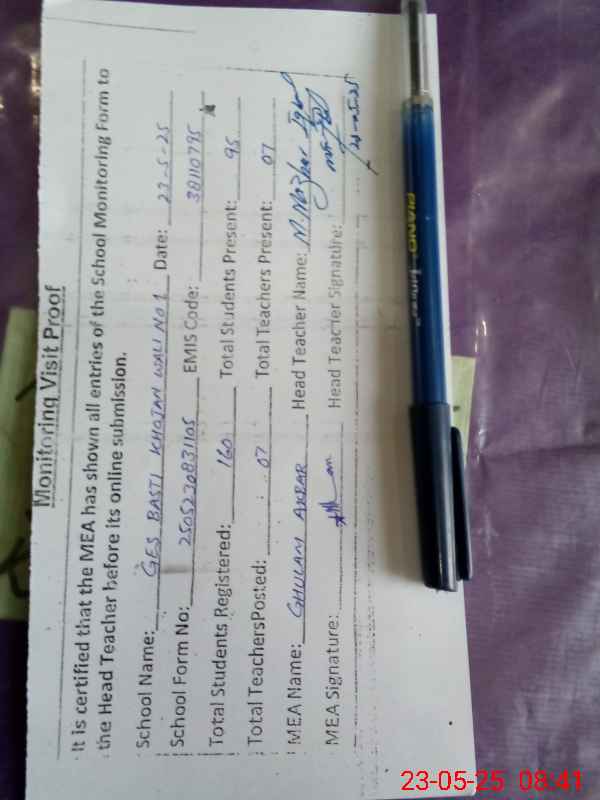 Monitoring Visit Proof
It is certified that the MEA has shown all entries of the School Monitoring Form to
the Head Teacher before its online submission.
School Name: GES BASTI KHOJAN WALI NO 1 Date: 23-5-25
School Form No: 2505230831105 EMIS Code: 38110795
Total Students Registered: 160 Total Students Present: 95
Total TeachersPosted: 07 Total Teachers Present: 07
MEA Name: GHULAM AKBAR Head Teacher Name: M. Mazhar Iqbal
MEA Signature: Head Teacher Signature:
23-05-25
PIANO
23-05-25 08:41